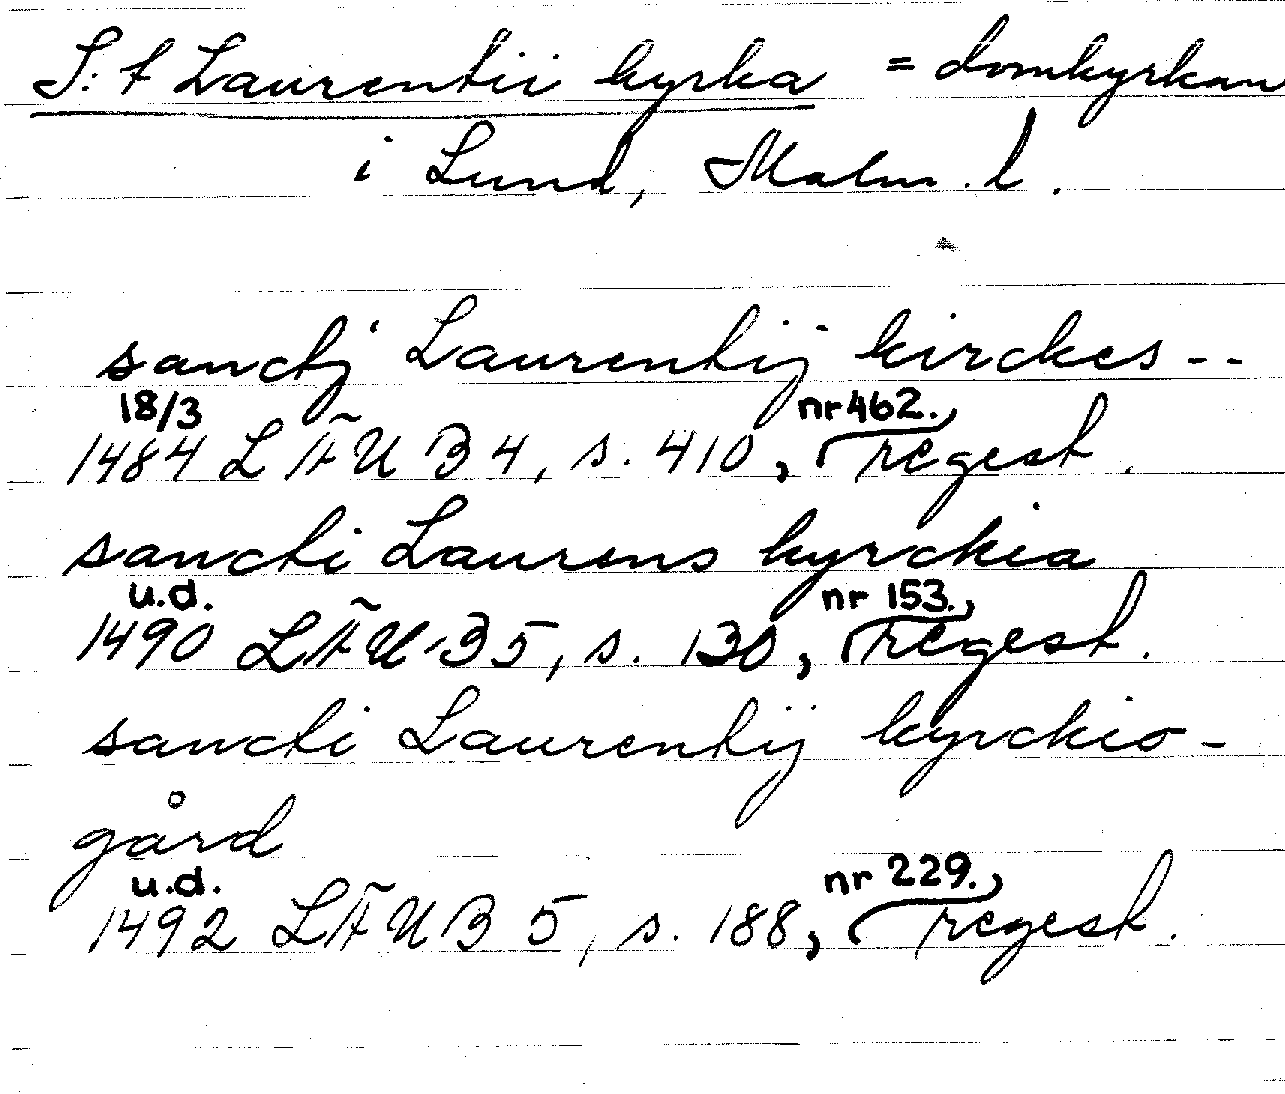 S:t Laurentii kyrka = domkyrkan
i Lund, Malm. l.
sanctj Laurentij kirckes--
18/3 nr 462.,
1484 LÄUB 4, s. 410, regest.
sancti Laurens kyrckia
u.d. nr 153.,
1490 LÄUB 5, s. 130, regest.
sancti Laurentij kyrckio-
gård
u.d. nr 229.,
1492 LÄUB 5, s. 188, regest.